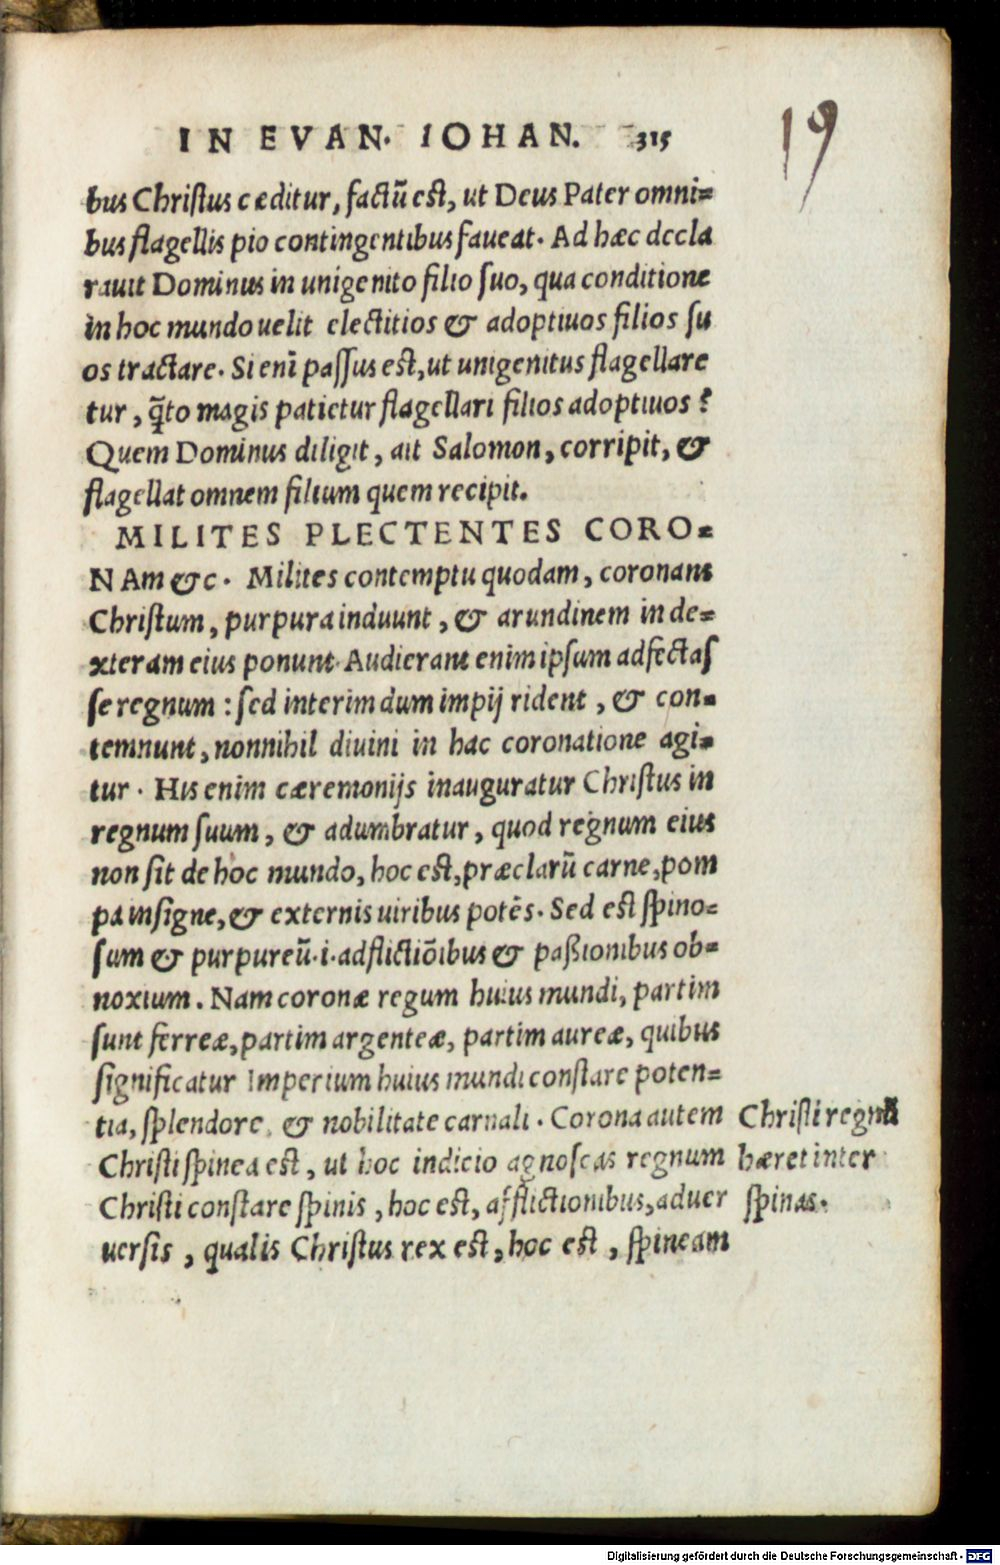 IN EVAN. IOHAN. 315
19
bus Christus cæditur, factū est, ut Deus Pater omni=
bus flagellis pio contingentibus faueat. Ad hæc decla
rauit Dominus in unigenito filio suo, qua conditione
in hoc mundo uelit electitios & adoptiuos filios su
os tractare. Si eni passus est, ut unigenitus flagellare
tur, q̄to magis patietur flagellari filios adoptiuos?
Quem Dominus diligit, ait Salomon, corripit, &
flagellat omnem filium quem recipit.
MILITES PLECTENTES CORO=
NAm &c. Milites contemptu quodam, coronant
Christum, purpura induunt, & arundinem in de=
xteram eius ponunt. Audierant enim ipsum adfectas
se regnum : sed interim dum impij rident, & con=
temnunt, nonnihil diuini in hac coronatione agi=
tur. His enim cæremonijs inauguratur Christus in
regnum suum, & adumbratur, quod regnum eius
non sit de hoc mundo, hoc est, præclarū carne, pom
pa insigne, & externis uiribus potēs. Sed est spino=
sum & purpureū .i. adflictiōibus & passionibus ob=
noxium. Nam coronæ regum huius mundi, partim
sunt ferreæ, partim argenteæ, partim aureæ, quibus
significatur Imperium huius mundi constare poten=
tia, splendore, & nobilitate carnali. Corona autem
Christi spinea est, ut hoc indicio agnoscas regnum
Christi constare spinis, hoc est, afflictionibus, aduer
uersis, qualis Christus rex est, hoc est, spineam
Christi regnū
hæret inter
spinas.
Digitalisierung gefördert durch die Deutsche Forschungsgemeinschaft - DFG